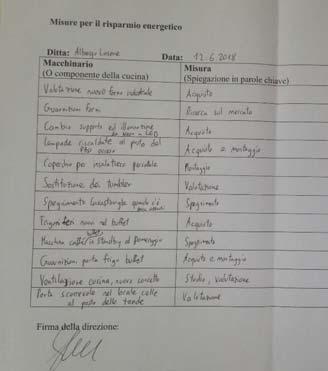 Misure per il risparmio energetico
Ditta: Albergo Losone Data: 12.6.2018
Macchinario Misura
(O componente della cucina) (Spiegazione in parole chiave)
Valutazione nuovo forno industriale Acquisto
Guarnizioni forni Ricerca sul mercato
Cambio supporto ed illuminazione Acquisto
da neon a LED
Lampade riscaldate al posto del Acquisto e montaggio
Coperchio per insalatiere Montaggio
Sostituzione dei tumbler Valutazione
Spegnimento lavastoviglie quando c'è Spegnimento
Frigoriferi nuovi nel buffet Acquisto
Macchina caffè buffet in standby al pomeriggio Spegnimento
Guarnizioni porta frigo buffet Acquisto e montaggio
Ventilazione cucina, nuovo concetto Studio, valutazione
Porta scorrevole nel locale calle Valutazione
al posto delle tende
Firma della direzione: